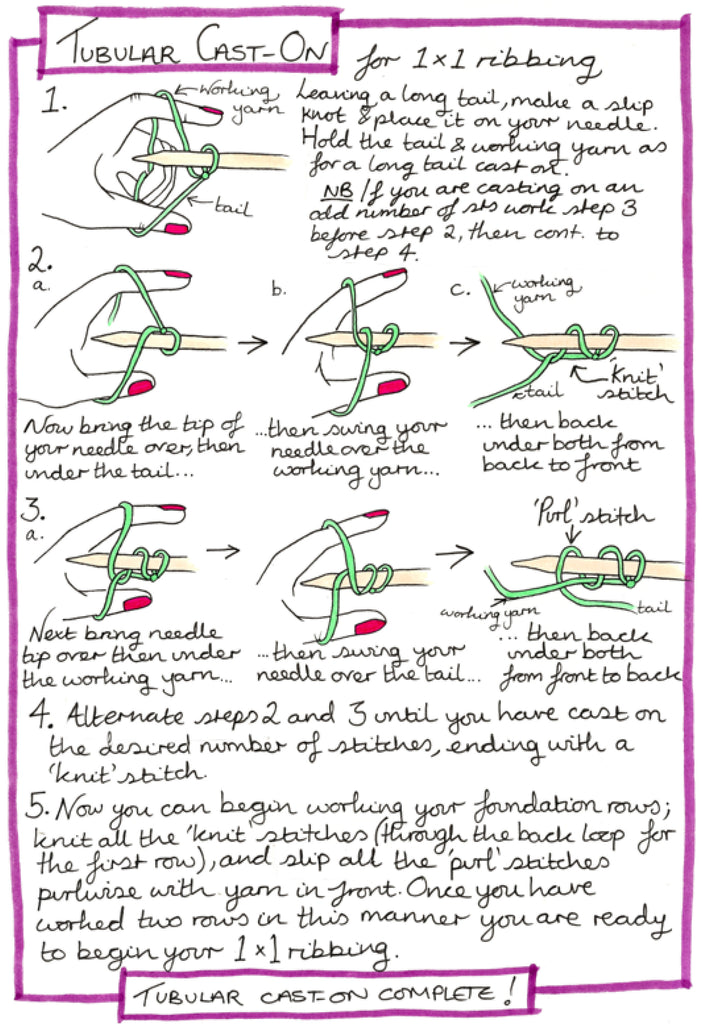 TUBULAR CAST-ON
for 1×1 ribbing
1.
working
yarn
tail
Leaving a long tail, make a slip
knot & place it on your needle.
Hold the tail & working yarn as
for a long tail cast on.
NB If you are casting on an
odd number of sts work step 3
before step 2, then cont. to
step 4.
2.
a.
Now bring the tip of
your needle over, then
under the tail...
b.
...then swing your
needle over the
working yarn...
c.
working
yarn
tail
'Knit'
stitch
... then back
under both from
back to front
3.
a.
Next bring needle
tip over then under
the working yarn...
...then swing your
needle over the tail...
'Purl' stitch
working yarn
tail
... then back
under both
from front to back
4. Alternate steps 2 and 3 until you have cast on
the desired number of stitches, ending with a
'knit' stitch.
5. Now you can begin working your foundation rows;
knit all the 'knit' stitches (through the back loop for
the first row), and slip all the 'purl' stitches
purlwise with yarn in front. Once you have
worked two rows in this manner you are ready
to begin your 1×1 ribbing.
TUBULAR CAST-ON COMPLETE!